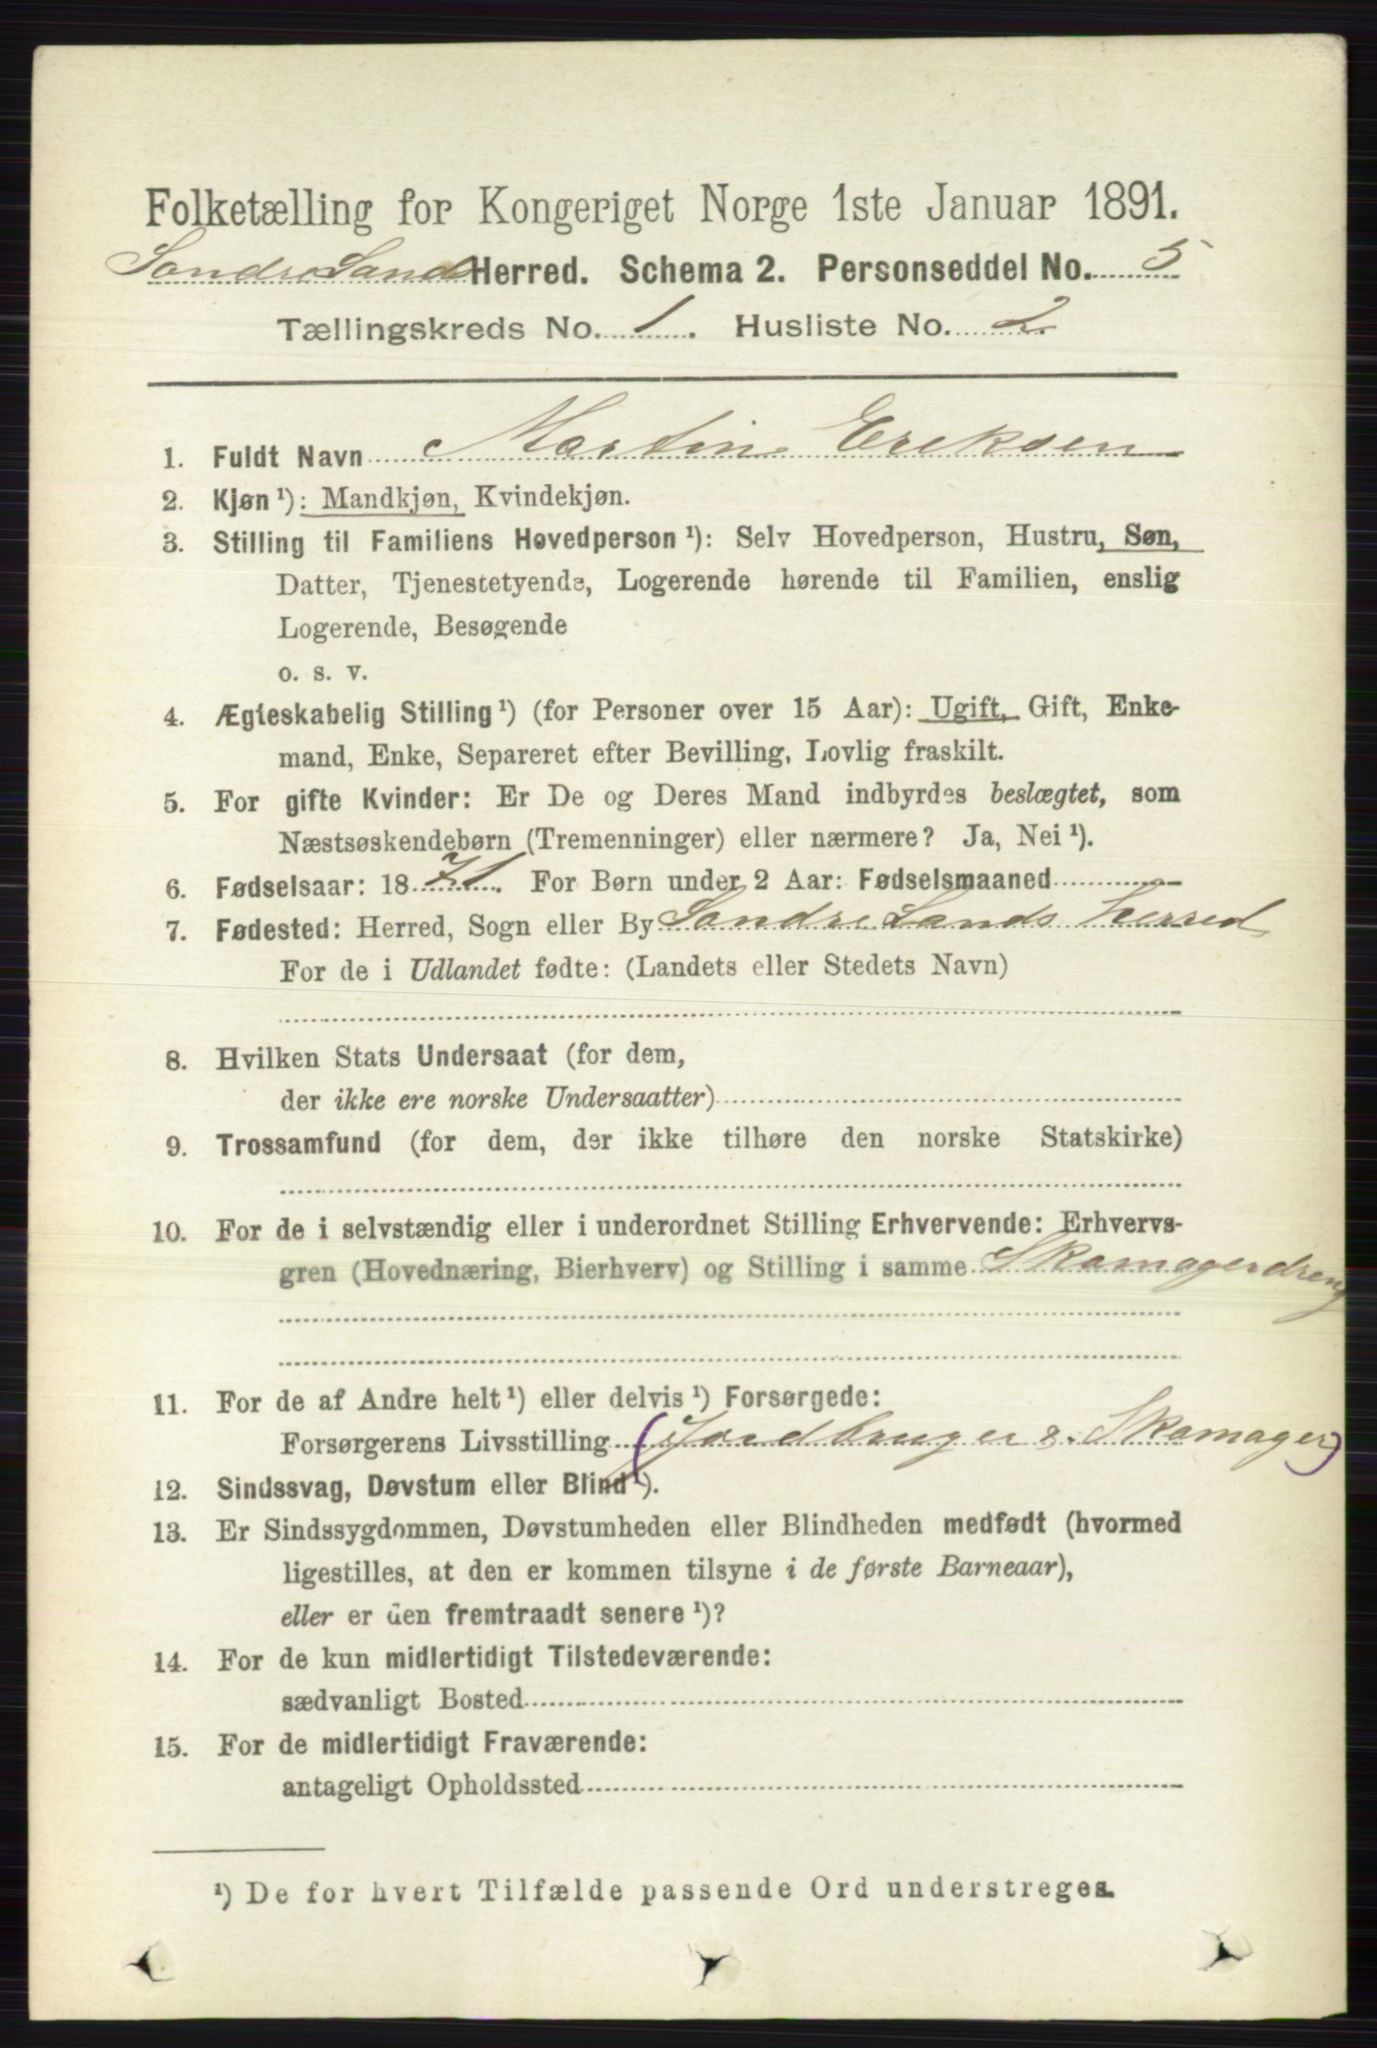 Folketælling for Kongeriget Norge 1ste Januar 1891.
Søndre Land Herred. Schema 2. Personseddel No. 5
Tællingskreds No. 1. Husliste No. 2.
1. Fuldt Navn Martin Eriksen
2. Kjøn ¹): Mandkjøn, Kvindekjøn.
3. Stilling til Familiens Hovedperson ¹): Selv Hovedperson, Hustru, Søn,
Datter, Tjenestetyende, Logerende hørende til Familien, enslig
Logerende, Besøgende
o. s. v.
4. Ægteskabelig Stilling ¹) (for Personer over 15 Aar): Ugift, Gift, Enke-
mand, Enke, Separeret efter Bevilling, Lovlig fraskilt.
5. For gifte Kvinder: Er De og Deres Mand indbyrdes beslægtet, som
Næstsøskendebørn (Tremenninger) eller nærmere? Ja, Nei ¹).
6. Fødselsaar: 18 71. For Børn under 2 Aar: Fødselsmaaned
7. Fødested: Herred, Sogn eller By Søndre Lands herred
For de i Udlandet fødte: (Landets eller Stedets Navn)
8. Hvilken Stats Undersaat (for dem,
der ikke ere norske Undersaatter)
9. Trossamfund (for dem, der ikke tilhøre den norske Statskirke)
10. For de i selvstændig eller i underordnet Stilling Erhvervende: Erhvervs-
gren (Hovednæring, Bierhverv) og Stilling i samme Skomagerdreng
11. For de af Andre helt ¹) eller delvis ¹) Forsørgede:
Forsørgerens Livsstilling (Jordbruger & Skomager)
12. Sindssvag, Døvstum eller Blind ¹).
13. Er Sindssygdommen, Døvstumheden eller Blindheden medfødt (hvormed
ligestilles, at den er kommen tilsyne i de første Barneaar),
eller er den fremtraadt senere ¹)?
14. For de kun midlertidigt Tilstedeværende:
sædvanligt Bosted
15. For de midlertidigt Fraværende:
antageligt Opholdssted
¹) De for hvert Tilfælde passende Ord understreges.